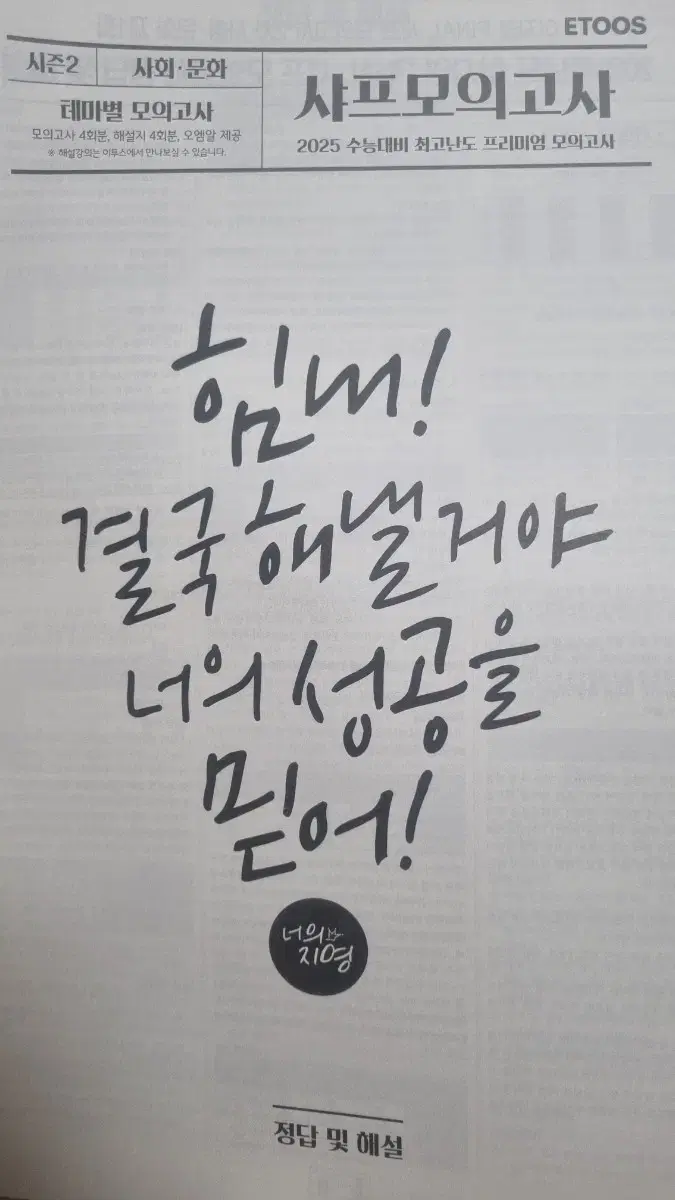 ETOOS
시즌2
사회·문화
테마별 모의고사
모의고사 4회분, 해설지 4회분, 오엠알 제공
※ 해설강의는 이투스에서 만나보실 수 있습니다.
샤프모의고사
2025 수능대비 최고난도 프리미엄 모의고사
힘내!
결국 해낼거야
너의 성공을
믿어!
너의
지영
정답 및 해설